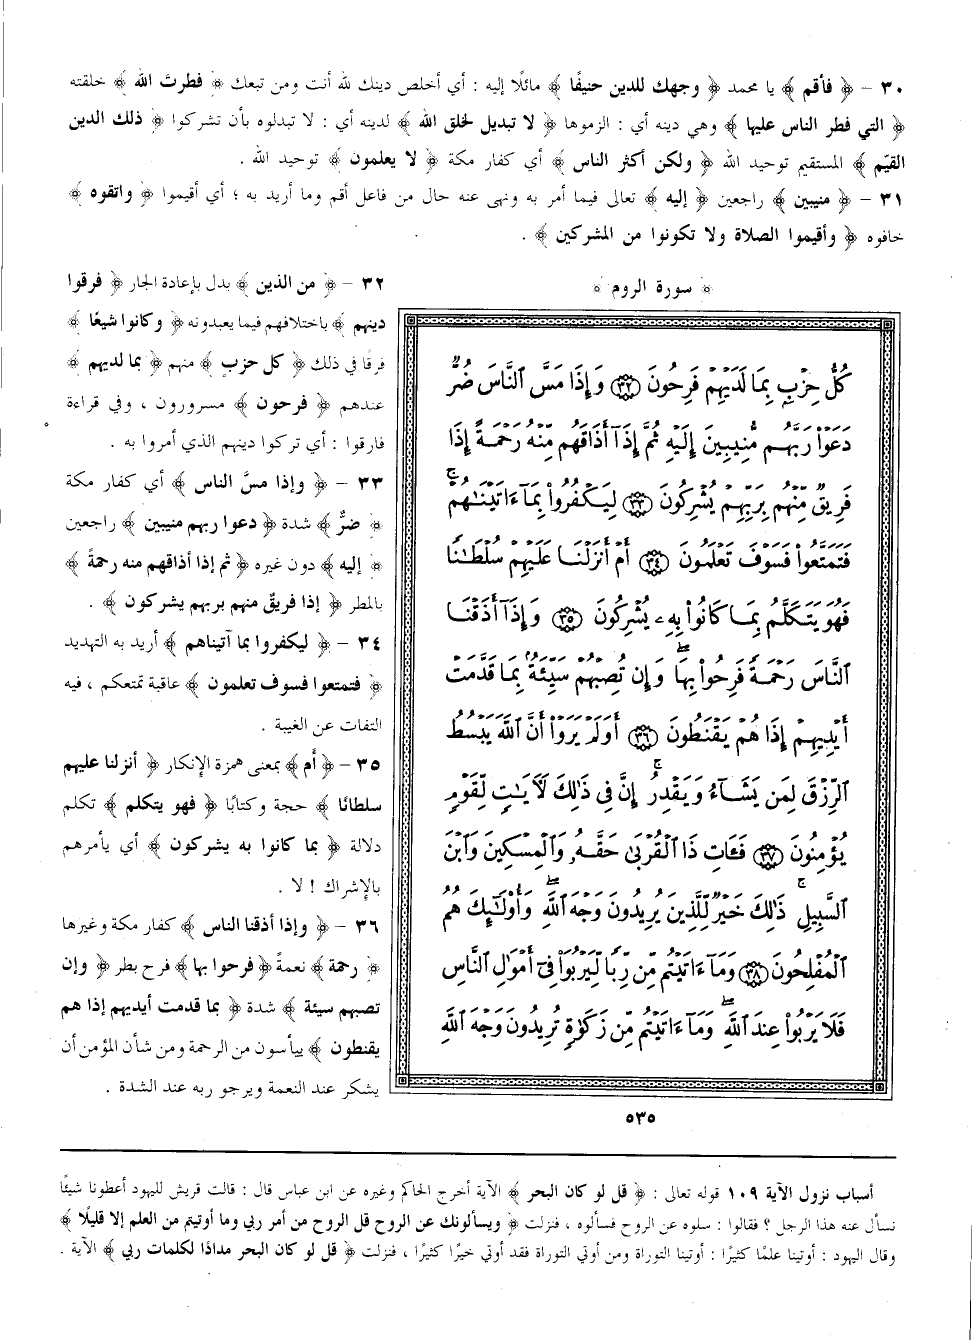 ٣٠ – ﴿ فأقم ﴾ يا محمد ﴿ وجهك للدين حنيفًا ﴾ مائلًا إليه : أي أخلص دينك لله أنت ومن تبعك ﴿ فطرتَ الله ﴾ خلقته
﴿ التي فطر الناس عليها ﴾ وهي دينه أي : الزموها ﴿ لا تبديل لخلق الله ﴾ لدينه أي : لا تبدلوه بأن تشركوا ﴿ ذلك الدين
القيّم ﴾ المستقيم توحيد الله ﴿ ولكن أكثر الناس ﴾ أي كفار مكة ﴿ لا يعلمون ﴾ توحيد الله .
٣١ – ﴿ منيبين ﴾ راجعين ﴿ إليه ﴾ تعالى فيما أمر به ونهى عنه حال من فاعل أقم وما أريد به ؛ أي أقيموا ﴿ واتقوه ﴾
خافوه ﴿ وأقيموا الصلاة ولا تكونوا من المشركين ﴾ .
﴿ سورة الروم ﴾
كُلُّ حِزْبٍۭ بِمَا لَدَيْهِمْ فَرِحُونَ ﴿٣٢﴾ وَإِذَا مَسَّ ٱلنَّاسَ ضُرٌّ
دَعَوْا۟ رَبَّهُم مُّنِيبِينَ إِلَيْهِ ثُمَّ إِذَآ أَذَاقَهُم مِّنْهُ رَحْمَةً إِذَا
فَرِيقٌ مِّنْهُم بِرَبِّهِمْ يُشْرِكُونَ ﴿٣٣﴾ لِيَكْفُرُوا۟ بِمَآ ءَاتَيْنَٰهُمْ ۚ
فَتَمَتَّعُوا۟ فَسَوْفَ تَعْلَمُونَ ﴿٣٤﴾ أَمْ أَنزَلْنَا عَلَيْهِمْ سُلْطَٰنًا
فَهُوَ يَتَكَلَّمُ بِمَا كَانُوا۟ بِهِۦ يُشْرِكُونَ ﴿٣٥﴾ وَإِذَآ أَذَقْنَا
ٱلنَّاسَ رَحْمَةً فَرِحُوا۟ بِهَا ۖ وَإِن تُصِبْهُمْ سَيِّئَةٌۢ بِمَا قَدَّمَتْ
أَيْدِيهِمْ إِذَا هُمْ يَقْنَطُونَ ﴿٣٦﴾ أَوَلَمْ يَرَوْا۟ أَنَّ ٱللَّهَ يَبْسُطُ
ٱلرِّزْقَ لِمَن يَشَآءُ وَيَقْدِرُ ۚ إِنَّ فِى ذَٰلِكَ لَءَايَٰتٍ لِّقَوْمٍ
يُؤْمِنُونَ ﴿٣٧﴾ فَـَٔاتِ ذَا ٱلْقُرْبَىٰ حَقَّهُۥ وَٱلْمِسْكِينَ وَٱبْنَ
ٱلسَّبِيلِ ۚ ذَٰلِكَ خَيْرٌ لِّلَّذِينَ يُرِيدُونَ وَجْهَ ٱللَّهِ ۖ وَأُو۟لَٰٓئِكَ هُمُ
ٱلْمُفْلِحُونَ ﴿٣٨﴾ وَمَآ ءَاتَيْتُم مِّن رِّبًا لِّيَرْبُوَا۟ فِىٓ أَمْوَٰلِ ٱلنَّاسِ
فَلَا يَرْبُوا۟ عِندَ ٱللَّهِ ۖ وَمَآ ءَاتَيْتُم مِّن زَكَوٰةٍ تُرِيدُونَ وَجْهَ ٱللَّهِ
٣٢ – ﴿ من الذين ﴾ بدل بإعادة الجار ﴿ فرقوا
دينهم ﴾ باختلافهم فيما يعبدونه ﴿ وكانوا شيعًا ﴾
فرقًا في ذلك ﴿ كل حزب ﴾ منهم ﴿ بما لديهم ﴾
عندهم ﴿ فرحون ﴾ مسرورون ، وفي قراءة
فارقوا : أي تركوا دينهم الذي أمروا به .
٣٣ – ﴿ وإذا مسَّ الناس ﴾ أي كفار مكة
﴿ ضرٌّ ﴾ شدة ﴿ دعوا ربهم منيبين ﴾ راجعين
﴿ إليه ﴾ دون غيره ﴿ ثم إذا أذاقهم منه رحمةً ﴾
بالمطر ﴿ إذا فريقٌ منهم بربهم يشركون ﴾ .
٣٤ – ﴿ ليكفروا بما آتيناهم ﴾ أريد به التهديد
﴿ فتمتعوا فسوف تعلمون ﴾ عاقبة تمتعكم ، فيه
التفات عن الغيبة .
٣٥ – ﴿ أم ﴾ بمعنى همزة الإنكار ﴿ أنزلنا عليهم
سلطانًا ﴾ حجة وكتابًا ﴿ فهو يتكلم ﴾ تكلم
دلالة ﴿ بما كانوا به يشركون ﴾ أي يأمرهم
بالإشراك ! لا .
٣٦ – ﴿ وإذا أذقنا الناس ﴾ كفار مكة وغيرها
﴿ رحمة ﴾ نعمةً ﴿ فرحوا بها ﴾ فرح بطر ﴿ وإن
تصبهم سيئة ﴾ شدة ﴿ بما قدمت أيديهم إذا هم
يقنطون ﴾ ييأسون من الرحمة ومن شأن المؤمن أن
يشكر عند النعمة ويرجو ربه عند الشدة .
٥٣٥
أسباب نزول الآية ١٠٩ قوله تعالى : ﴿ قل لو كان البحر ﴾ الآية أخرج الحاكم وغيره عن ابن عباس قال : قالت قريش لليهود أعطونا شيئًا
نسأل عنه هذا الرجل ؟ فقالوا : سلوه عن الروح فسألوه ، فنزلت ﴿ ويسألونك عن الروح قل الروح من أمر ربي وما أوتيتم من العلم إلا قليلًا ﴾
وقال اليهود : أوتينا علمًا كثيرًا : أوتينا التوراة ومن أوتي التوراة فقد أوتي خيرًا كثيرًا ، فنزلت ﴿ قل لو كان البحر مدادًا لكلمات ربي ﴾ الآية .